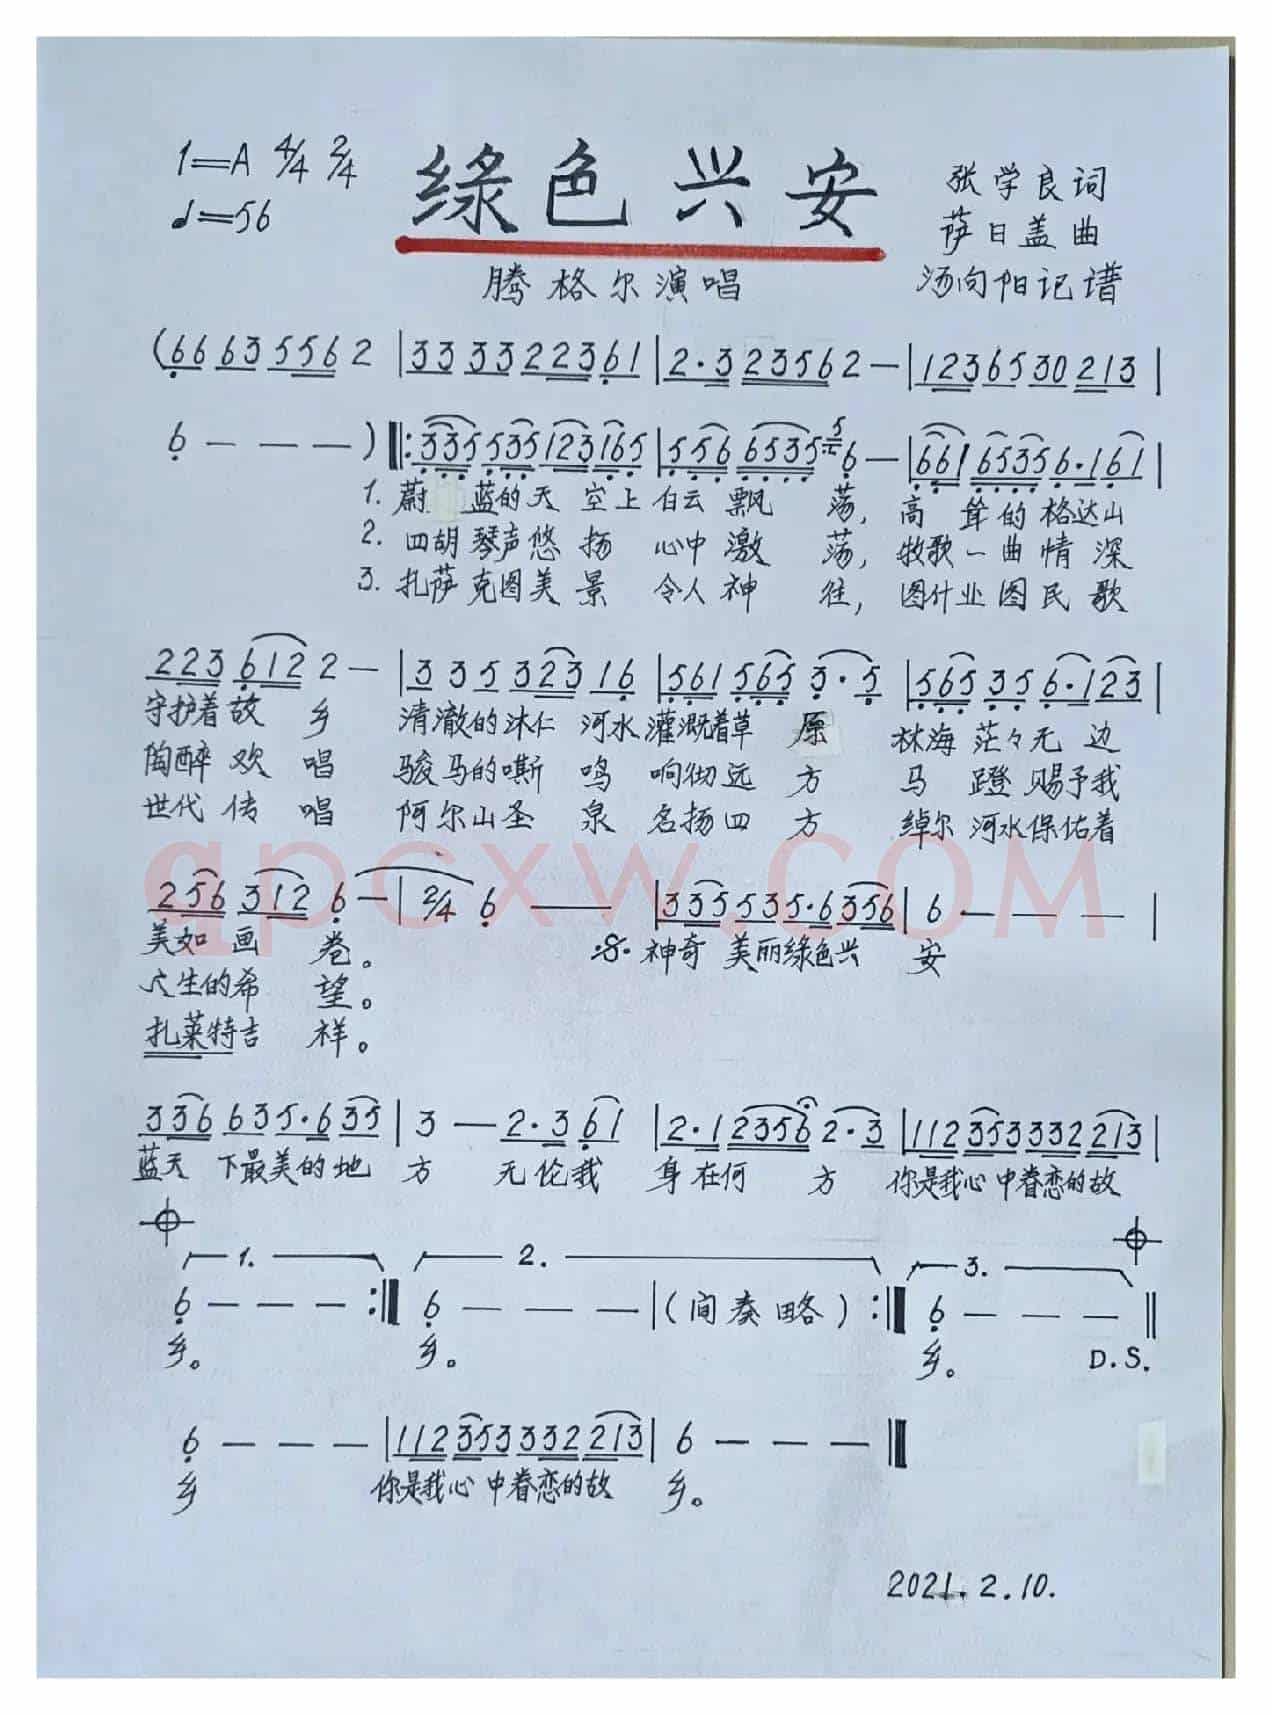 1=A 4/4 2/4
♩=56
绿色兴安
张学良词
萨日盖曲
汤向阳记谱
腾格尔演唱
(66 63 556 2 |33 33 2236 1|2·3 2356 2 — |123 65 30 213 |
6 — — — ) ‖: 3355 35 123 165 |5 56 6535 6 — |661 6535 6·1 61 |
1. 蔚蓝的天空上白云飘荡,高耸的格达山
2. 四胡琴声悠扬心中激荡,牧歌一曲情深
3. 扎萨克图美景令人神往,图什业图民歌
223 612 2 — |3 3 5 323 16 |561 565 3·5 |565 35 6·1 23 |
守护着故乡清澈的洮仁河水灌溉着草原林海茫々无边
陶醉欢唱骏马的嘶鸣响彻远方马蹬赐予我
世代传唱阿尔山圣泉名扬四方绰尔河水保佑着
256 312 6 — | 2/4 6 — |335 535·6 356 | 6 — — — |
美如画卷。神奇美丽绿色兴安
人生的希望。
扎莱特吉祥。
336 635·6 35 | 3 — 2·3 61 |2·1 2356 2·3 |112 353 332 213 |
蓝天下最美的地方无伦我身在何方你是我心中眷恋的故
1. 2. 3.
6 — — — :‖ 6 — — — |(间奏略) :‖ 6 — — — ‖
乡。乡。乡。 D.S.
6 — — — |112 353 332 213 | 6 — — — ‖
乡你是我心中眷恋的故乡。
2021.2.10.
qpcxw.COM